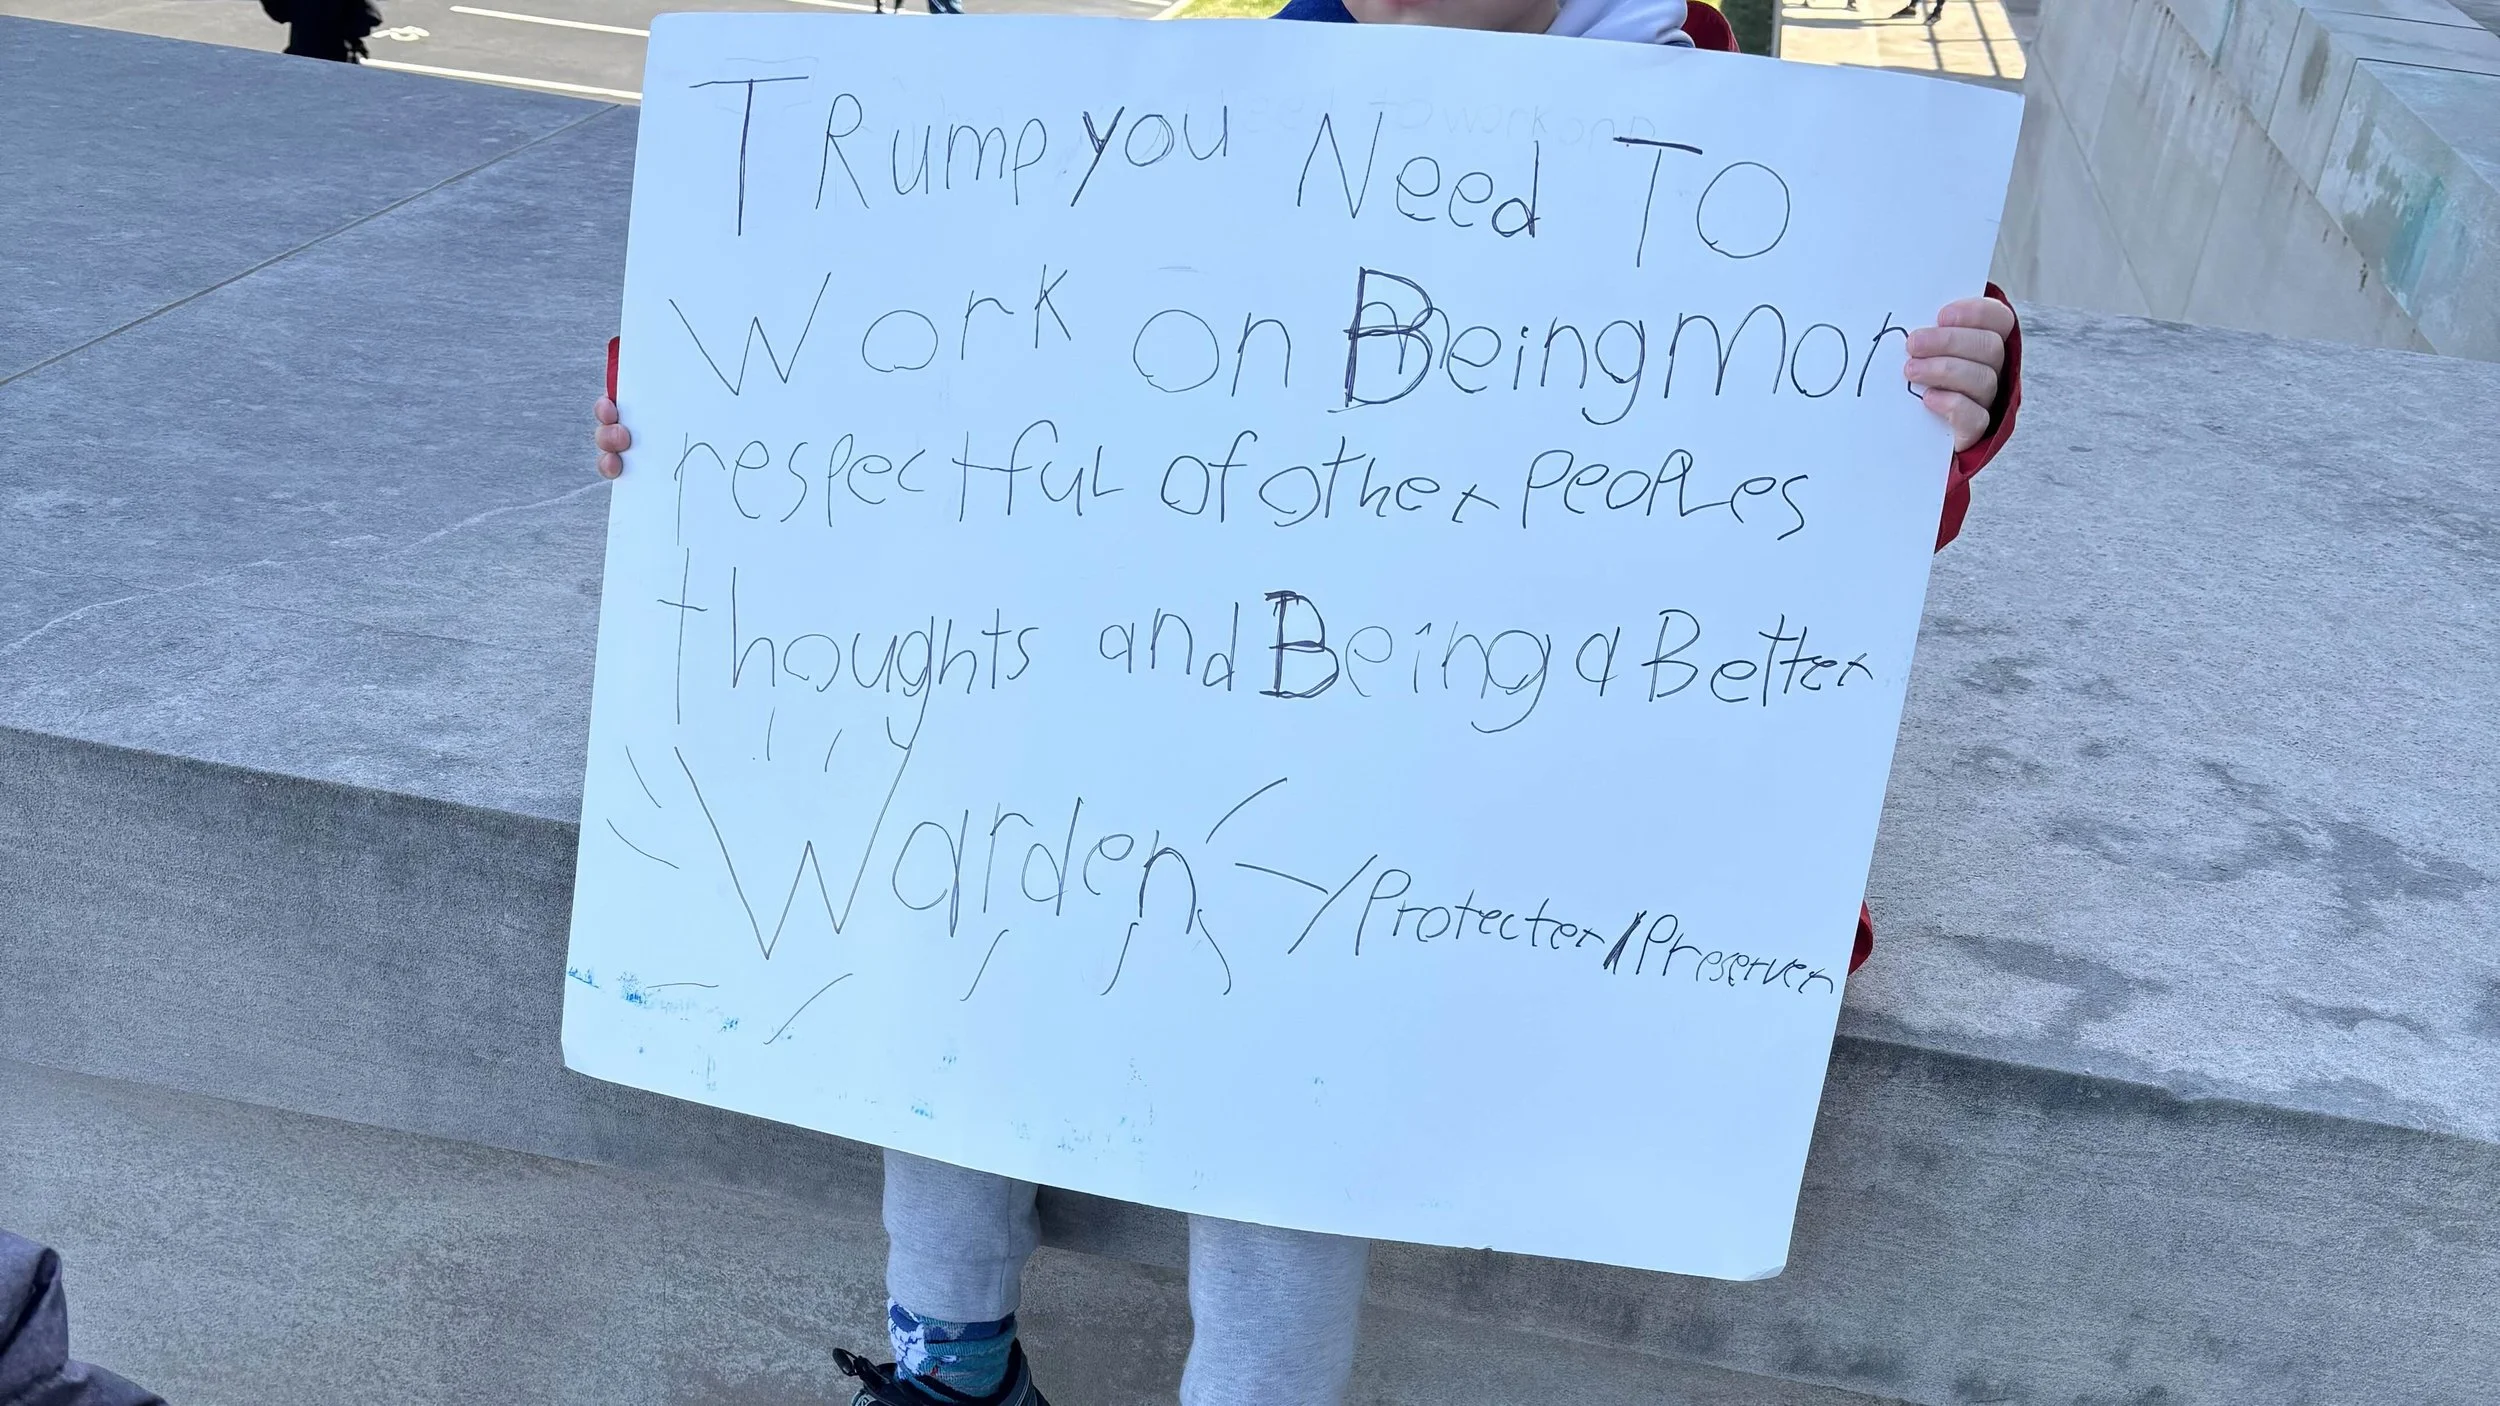 TRump you Need TO
Work on Being mor
respectful of other peoples
thoughts and Being a Better
Warden - / Protecter / Preserver